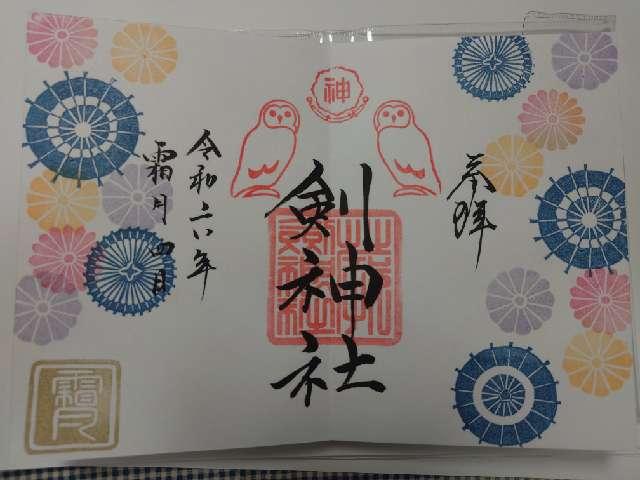 奉拝
神
剣神社
令和六年
霜月四日
霜月